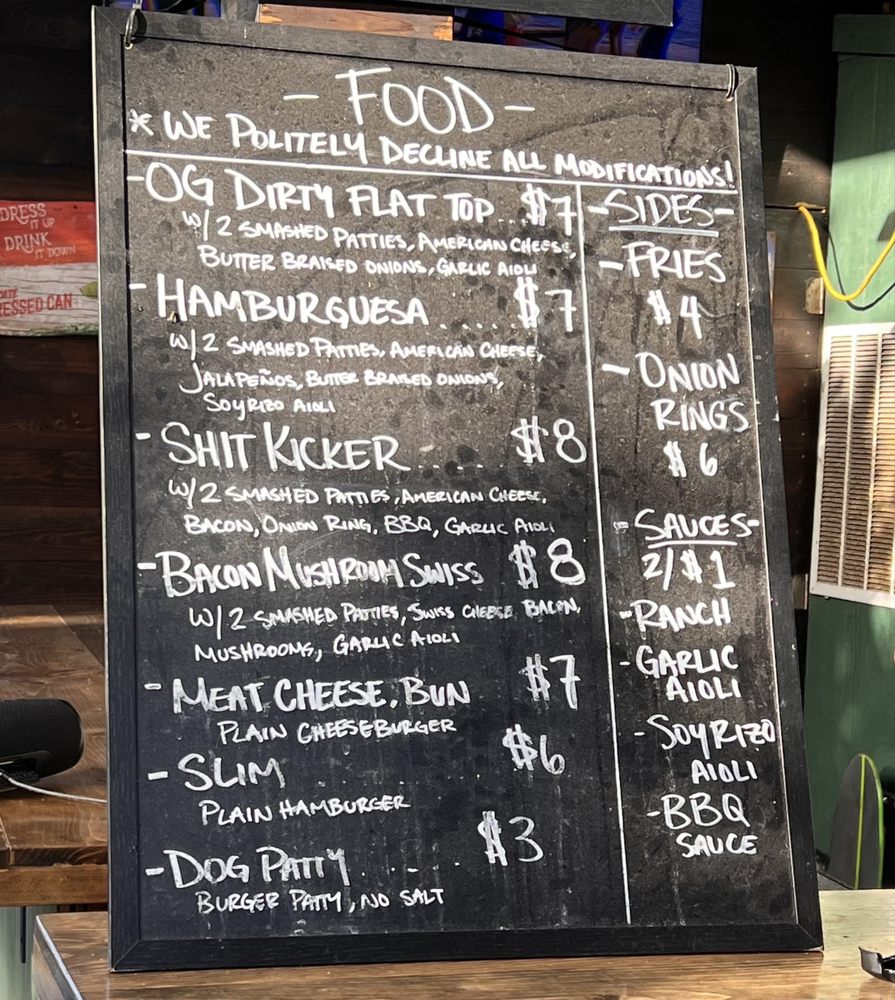 - FOOD -
* WE POLITELY DECLINE ALL MODIFICATIONS!
- OG DIRTY FLAT TOP... $7
W/ 2 SMASHED PATTIES, AMERICAN CHEESE,
BUTTER BRAISED ONIONS, GARLIC AIOLI
- HAMBURGUESA..... $7
W/ 2 SMASHED PATTIES, AMERICAN CHEESE,
JALAPEÑOS, BUTTER BRAISED ONIONS,
SOYRIZO AIOLI
- SHIT KICKER..... $8
W/ 2 SMASHED PATTIES, AMERICAN CHEESE,
BACON, ONION RING, BBQ, GARLIC AIOLI
- BACON MUSHROOM SWISS $8
W/ 2 SMASHED PATTIES, SWISS CHEESE, BACON,
MUSHROOMS, GARLIC AIOLI
- MEAT, CHEESE, BUN $7
PLAIN CHEESEBURGER
- SLIM $6
PLAIN HAMBURGER
- DOG PATTY..... $3
BURGER PATTY, NO SALT
- SIDES -
- FRIES
$4
- ONION
RINGS
$6
- SAUCES -
2/$1
- RANCH
- GARLIC
AIOLI
- SOYRIZO
AIOLI
- BBQ
SAUCE
DRESS
IT UP
DRINK
IT DOWN
RESSED CAN